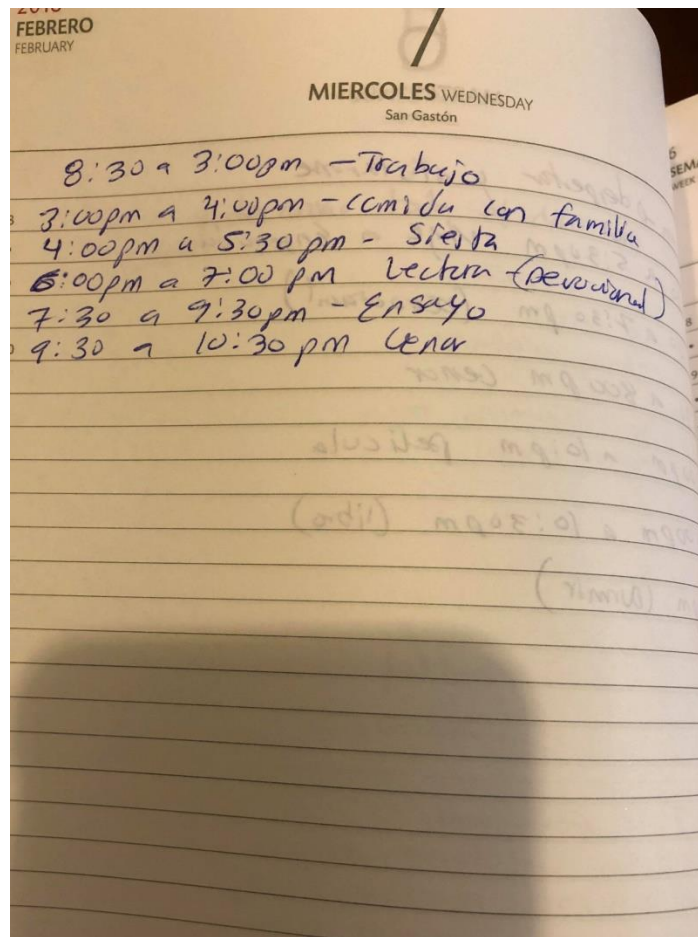 FEBRERO
FEBRUARY
7
MIERCOLES WEDNESDAY
San Gastón
8:30 a 3:00pm - Trabajo
3:00pm a 4:00pm - comida con familia
4:00pm a 5:30 pm - Siesta
6:00pm a 7:00 pm Lectura - (Devocional)
7:30 a 9:30pm - Ensayo
9:30 a 10:30 pm Cenar